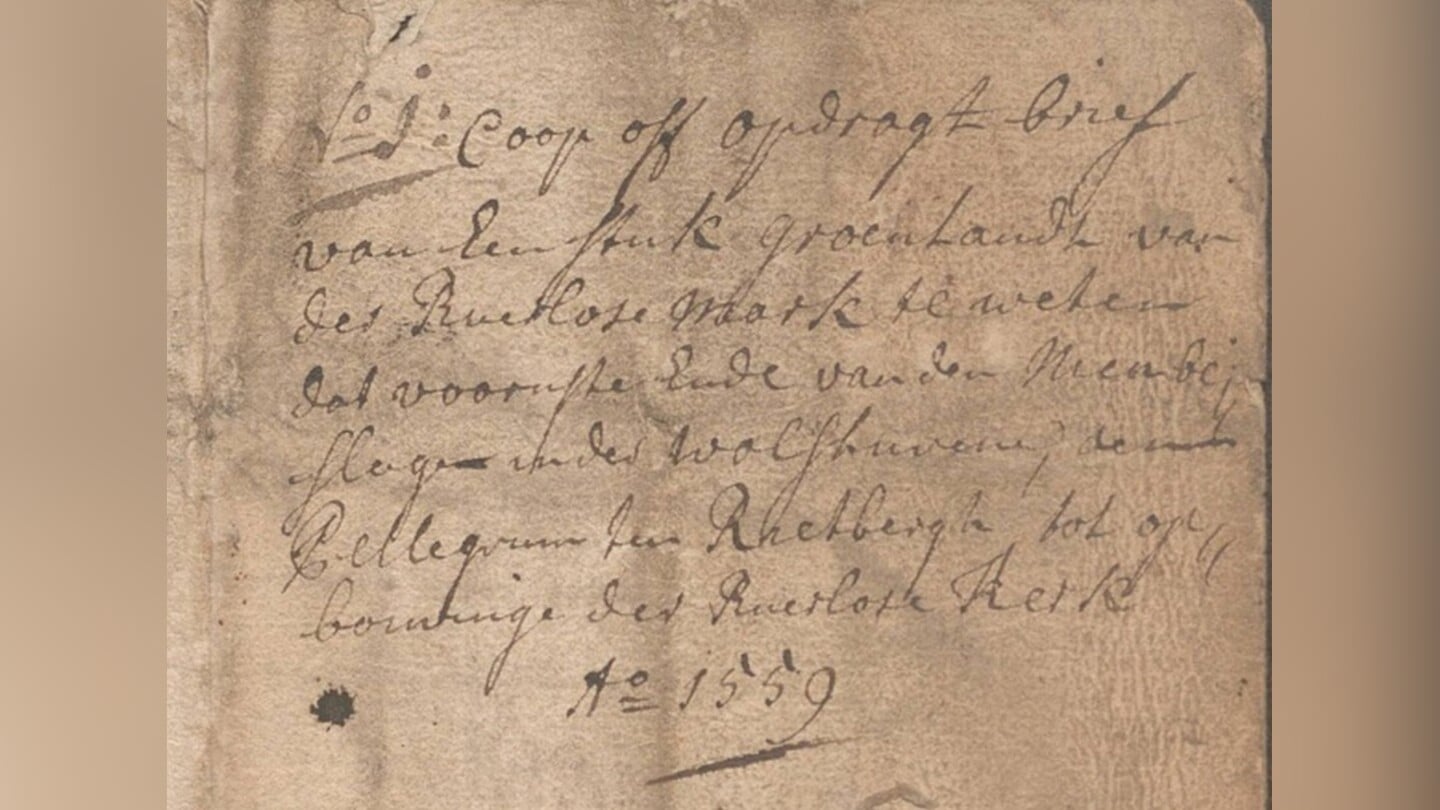 Coop off opdragt brief
van Een stuk groenlandt van
der Ruerlose Mark te weten
dat voornste Ende van den
slage in der wolfhurne, den
Pellegrum ten Rhetbergh, tot op"
bouwinge der Ruerlose Kerk
Ao 1559